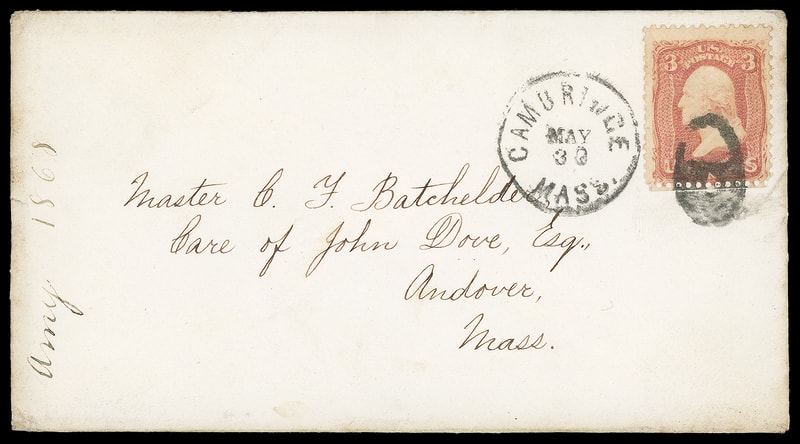 CAMBRIDGE
MAY
30
MASS.
3 U.S. 3
POSTAGE
Master C. F. Batchelder
Care of John Dove, Esq.,
Andover,
Mass.
Amy 1868